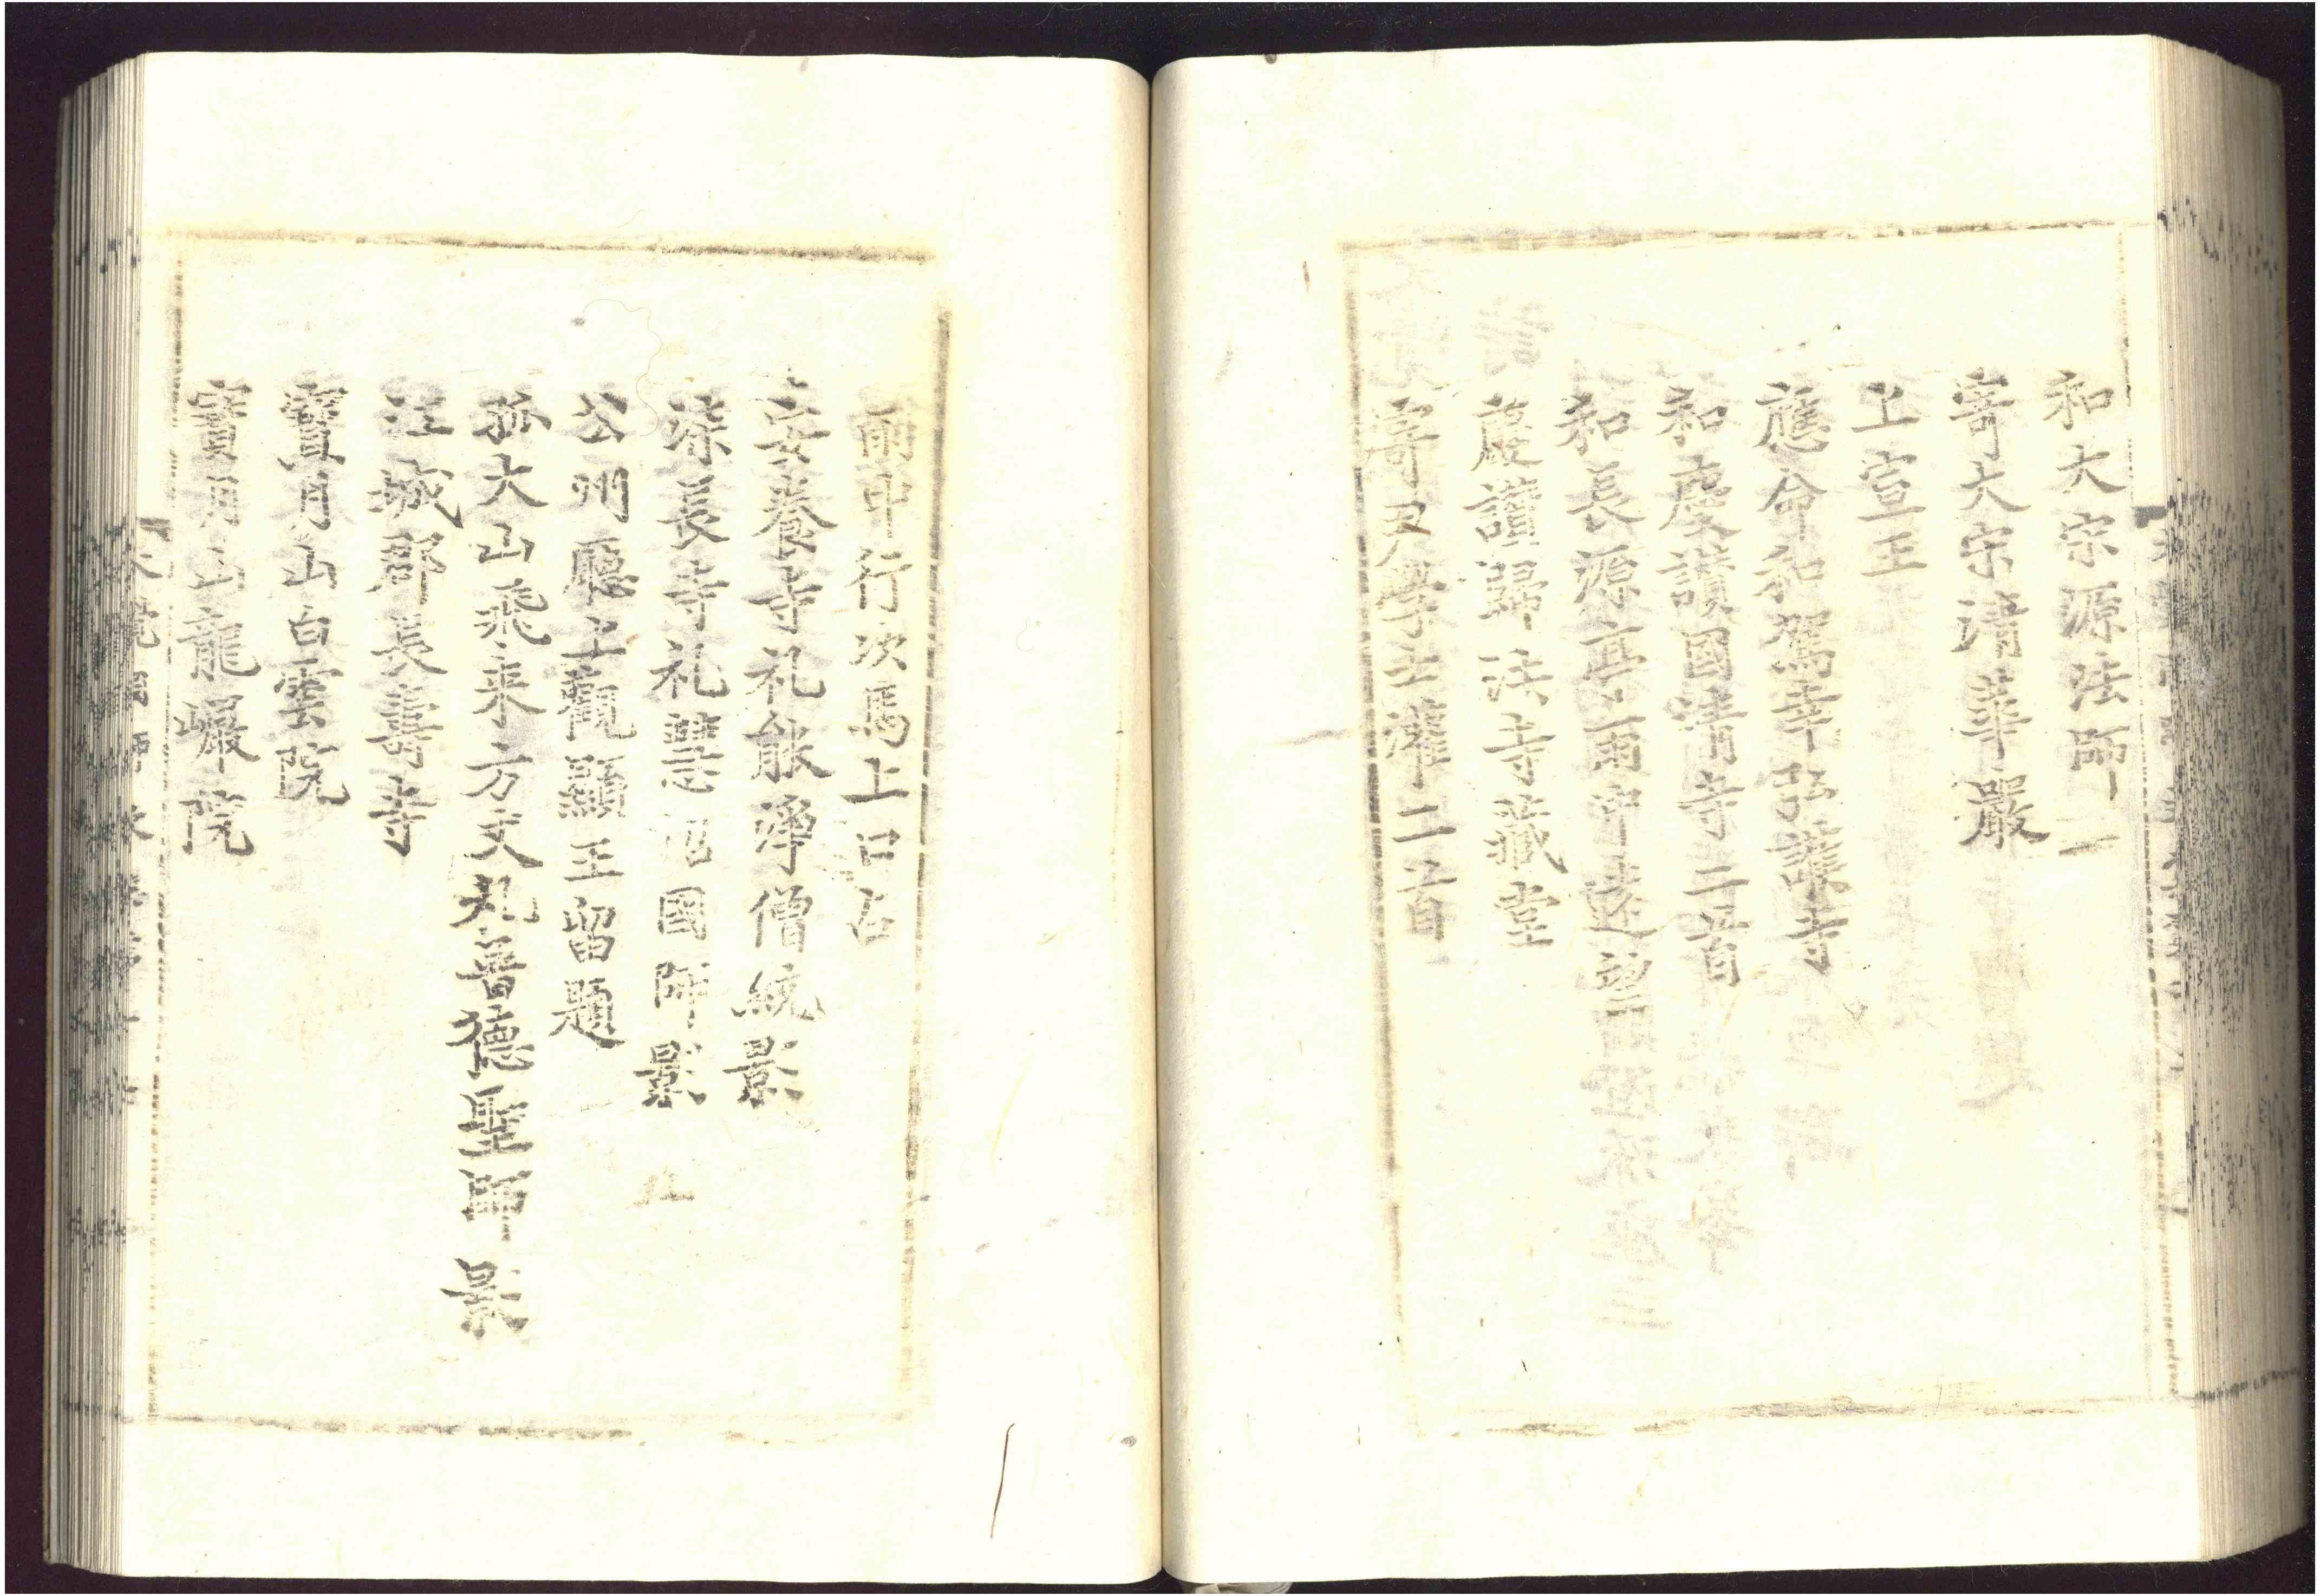 和大宗源法師一
寄大宗清華嚴
上宣王
應命和駕幸弘護寺
和慶讚國清寺二首
和長源亭雨中遠望
慶讚歸法寺藏堂
寄尹學士瓘二首
雨中行次馬上口占
安養寺礼能淨僧統影
深長寺礼慧炤國師影
公州廳上觀顯王留題
孤大山飛来方丈礼普德聖師影
江城郡長壽寺
寶月山白雲院
寶月山龍巖院